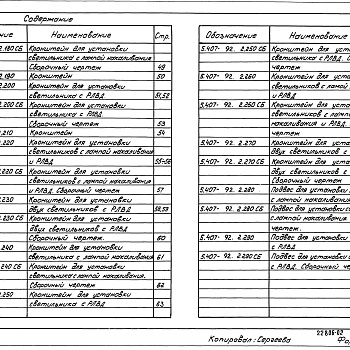 Содержание
Наименование
Стр.
2.180 СБ Кронштейн для установки
светильника с лампой накаливания
Сборочный чертеж 49
2.190 Кронштейн 50
2.200 Кронштейн для установки
светильника с РЛВД 51,52
2.200 СБ Кронштейн для установки
светильника с РЛВД
Сборочный чертеж 53
2.210 Кронштейн 54
2.220 Кронштейн для установки
светильников с лампой накаливания
и РЛВД 55-56
2.220 СБ Кронштейн для установки
светильников с лампой накаливания
и РЛВД. Сборочный чертеж 57
2.230 Кронштейн для установки
двух светильников с РЛВД 58,59
2.230 СБ Кронштейн для установки
двух светильников с РЛВД
Сборочный чертеж. 60
2.240 Кронштейн для установки
светильника с лампой накаливания 61
2.240 СБ Кронштейн для установки
светильника с лампой накаливания.
Сборочный чертеж 62
2.250 Кронштейн для установки
светильника с РЛВД 63
Обозначение Наименование
5.407-92. 2.250 СБ Кронштейн для
светильника с РЛВД.
чертеж
5.407-92. 2.260 Кронштейн для
светильников с
и РЛВД
5.407-92. 2.260 СБ Кронштейн для
светильников с
накаливания и РЛВД.
чертеж
5.407-92. 2.270 Кронштейн для
двух светильников с
5.407-92. 2.270 СБ Кронштейн для
двух светильников с
чертеж
5.407-92. 2.280 Подвес для установки
накаливания
5.407-92. 2.280 СБ Подвес для
с лампой накаливания
чертеж
5.407-92. 2.290 Подвес для установки
с РЛВД
5.407-92. 2.290 СБ Подвес для установки
с РЛВД. Сборочный
22806-02
Копировал: Сергеева